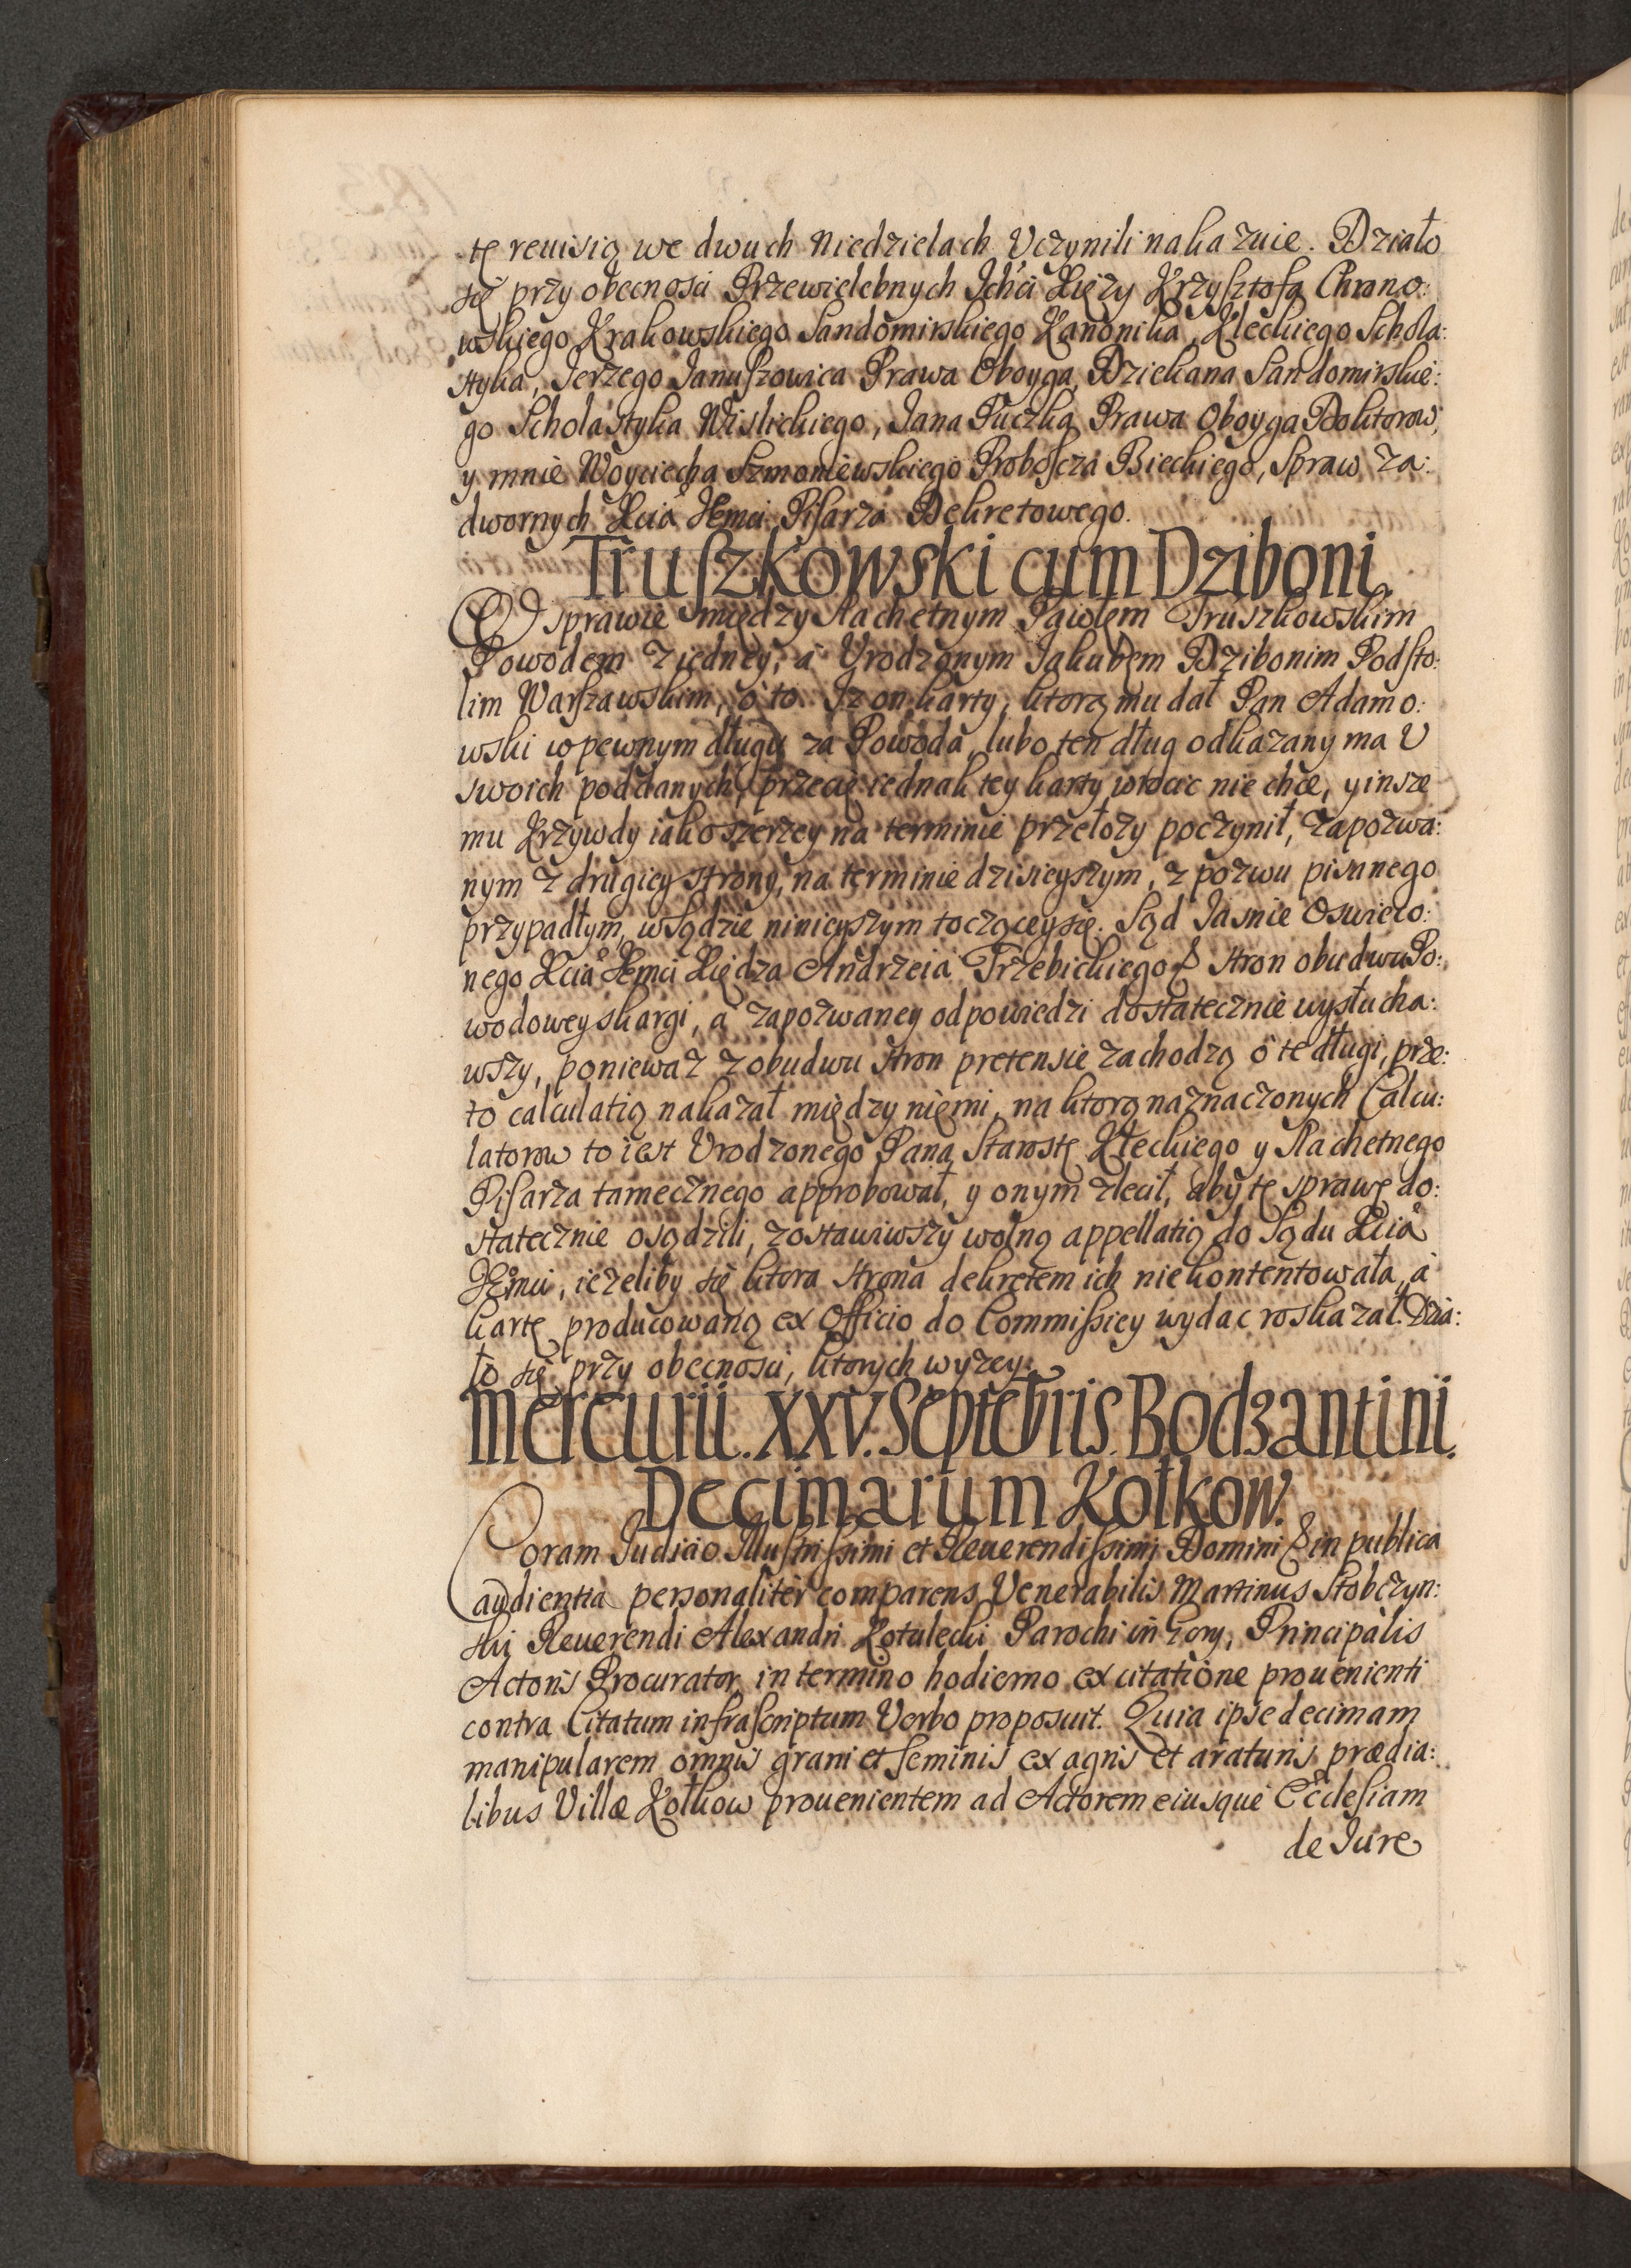 tę reuisią we dwuch Niedzielach Vczynili nakazuie. Działo
się przy obecnosci Przewielebnych Ichći Xięzy Krzysztofa Chrono:
wskiego Krakowskiego Sandomirskiego Kanonika, Kleckiego Schola:
styka, Jerzego Januszowica Prawa Oboyga, Dziekana Sandomirskie:
go Scholastyka Wislickiego, Jana Puczka Prawa Oboyga Doktorow,
y mnie Woyciecha Szmoniewskiego Proboscza Bieckiego, Spraw za:
dwornych Xcia Jemci Pisarza Dekretowego.
Truszkowski cum Dziboni.
W sprawie między Slachetnym Pawlem Truszkowskim
Powodem z iedney, á Vrodzonym Jakubem Dzibonim Podsto:
lim Warszawskim, ó to. Iz on karty, ktorą mu dał Pan Adamo:
wski w pewnym długu za Powoda, lubo ten dług odkazany ma V
swoich poddanych, przecię iednak tey karty wrocic nie chce, y insze
mu Krzywdy iako szerzey na terminie przełozy poczynił, zapozwa:
nym z drugiey strony, na terminie dzisieyszym, z pozwu pisanego
przypadłym, w Sądzie ninieyszym toczącey się. Sąd Jasnie Oswieco:
nego Xcia Jemci Xiędza Andrzeia Trzebickiego & stron obudwu Po:
wodowey skargi, á zapozwaney odpowiedzi dostatecznie wysłucha:
wszy, poniewaz z obudwu stron pretensie zachodzą ó te długi, prze:
to calculatią nakazał między niemi, na ktorą naznaczonych Calcu:
latorow to iest Vrodzonego Pana Starostę Kłeckiego y Slachetnego
Pisarza tamecznego approbował, y onym zlecił, aby tę sprawę do:
statecznie osądzili, zostawiwszy wolną appellatią do Sądu Xcia
Jemci, iezeliby się ktora strona dekretem ich niekontentowała, á
kartę producowaną ex Officio do Commissiey wydac roskazał. Dzia:
ło się przy obecnosci, ktorych wyzey.
Mercurii. XXV. Septebris. Bodzantini.
Decimarum Kołkow.
Coram Judicio Illustrissimi et Reuerendissimi Domini & in publica
audientia personaliter comparens Venerabilis Martinus Stobczyn:
ski Reuerendi Alexandri Kotulecki Parochi in Gory, Principalis
Actoris Procurator, in termino hodierno ex citatione prouenienti
contra Citatum infrascriptum Verbo proposuit. Quia ipse decimam
manipularem omnis grani et seminis ex agris et araturis prædia:
libus Villæ Kołkow prouenientem ad Actorem eiusque Ecclesiam
de Jure